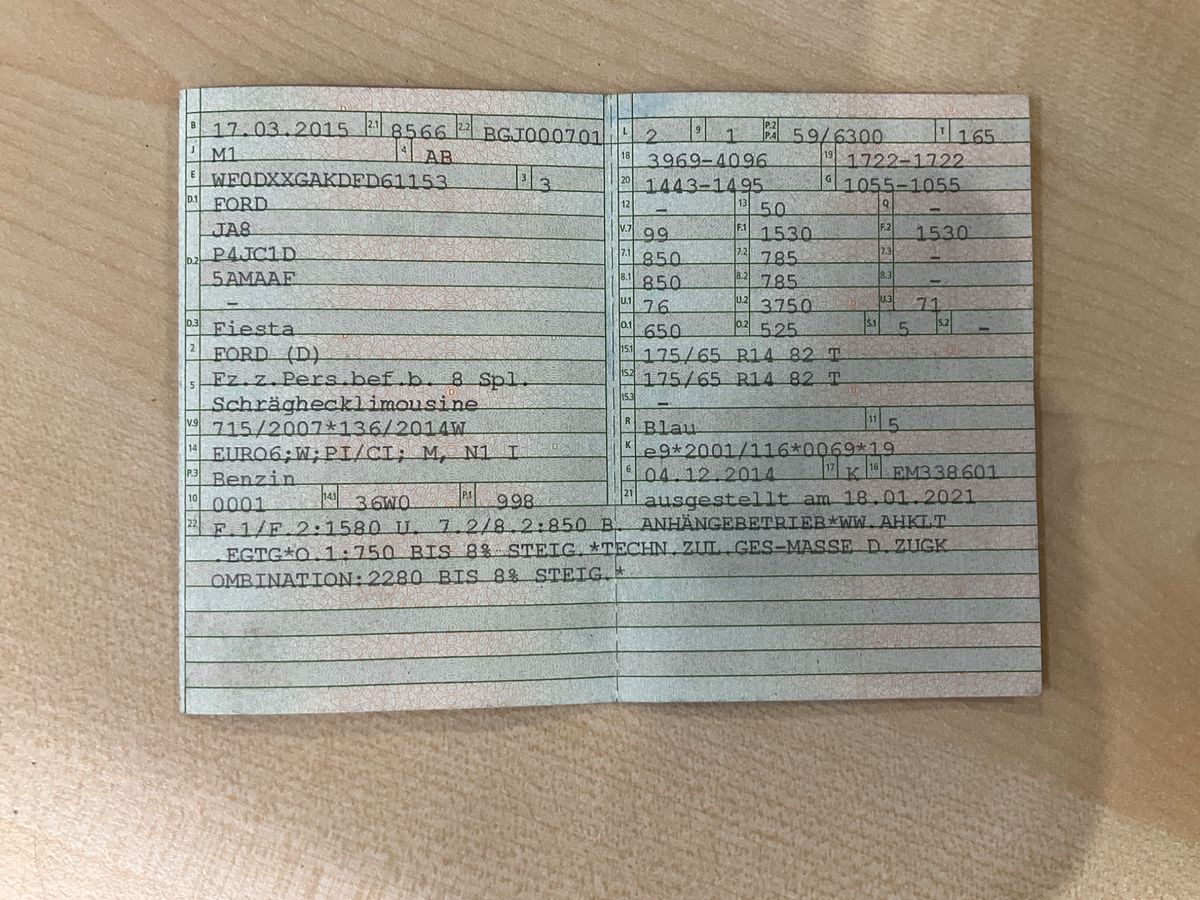 B 17.03.2015 2.1 8566 2.2 BGJ000701
J M1 4 AB
E WF0DXXGAKDFD61153 3 3
D.1 FORD
JA8
D.2 P4JC1D
5AMAAF
–
D.3 Fiesta
2 FORD (D)
5 Fz.z.Pers.bef.b. 8 Spl.
Schräghecklimousine
V.9 715/2007*136/2014W
14 EURO6;W;PI/CI; M, N1 I
P.3 Benzin
10 0001 14.1 36W0 P.1 998
L 2 9 1 P.2 P.4 59/6300 T 165
18 3969-4096 19 1722-1722
20 1443-1495 G 1055-1055
12 – 13 50 Q –
V.7 99 F.1 1530 F.2 1530
7.1 850 7.2 785 7.3 –
8.1 850 8.2 785 8.3 –
U.1 76 U.2 3750 U.3 71
O.1 650 O.2 525 S.1 5 S.2 –
15.1 175/65 R14 82 T
15.2 175/65 R14 82 T
15.3 –
R Blau 11 5
K e9*2001/116*0069*19
6 04.12.2014 17 K 16 EM338601
21 ausgestellt am 18.01.2021
22 F.1/F.2:1580 U. 7.2/8.2:850 B. ANHÄNGEBETRIEB*WW.AHKLT
.EGTG*O.1:750 BIS 8% STEIG.*TECHN.ZUL.GES-MASSE D.ZUGK
OMBINATION:2280 BIS 8% STEIG.*